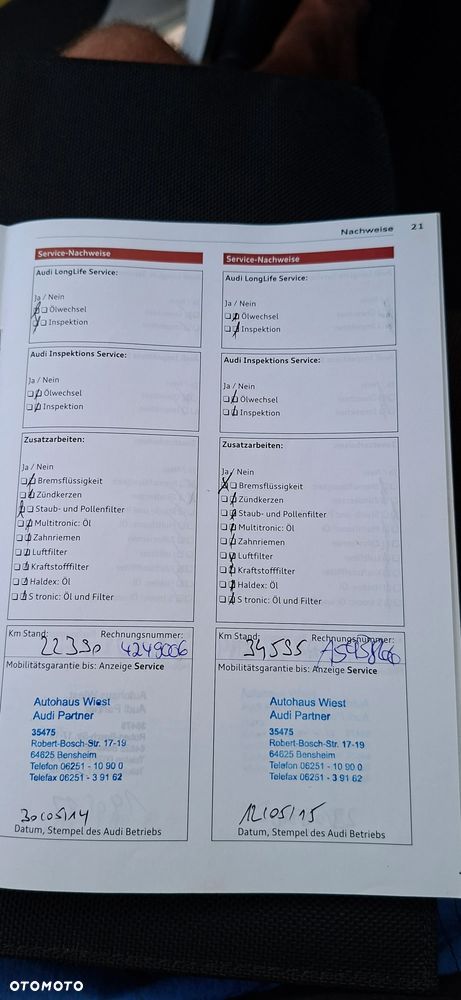 Nachweise 21
Service-Nachweise
Audi LongLife Service:
Ja / Nein
Ölwechsel
Inspektion
Audi Inspektions Service:
Ja / Nein
Ölwechsel
Inspektion
Zusatzarbeiten:
Ja / Nein
Bremsflüssigkeit
Zündkerzen
Staub- und Pollenfilter
Multitronic: Öl
Zahnriemen
Luftfilter
Kraftstofffilter
Haldex: Öl
S tronic: Öl und Filter
Km Stand: Rechnungsnummer:
22390 4249006
Mobilitätsgarantie bis: Anzeige Service
Autohaus Wiest
Audi Partner
35475
Robert-Bosch-Str. 17-19
64625 Bensheim
Telefon 06251 - 10 90 0
Telefax 06251 - 3 91 62
30/05/14
Datum, Stempel des Audi Betriebs
Service-Nachweise
Audi LongLife Service:
Ja / Nein
Ölwechsel
Inspektion
Audi Inspektions Service:
Ja / Nein
Ölwechsel
Inspektion
Zusatzarbeiten:
Ja / Nein
Bremsflüssigkeit
Zündkerzen
Staub- und Pollenfilter
Multitronic: Öl
Zahnriemen
Luftfilter
Kraftstofffilter
Haldex: Öl
S tronic: Öl und Filter
Km Stand: Rechnungsnummer:
34595
Mobilitätsgarantie bis: Anzeige Service
Autohaus Wiest
Audi Partner
35475
Robert-Bosch-Str. 17-19
64625 Bensheim
Telefon 06251 - 10 90 0
Telefax 06251 - 3 91 62
12/05/15
Datum, Stempel des Audi Betriebs
OTOMOTO